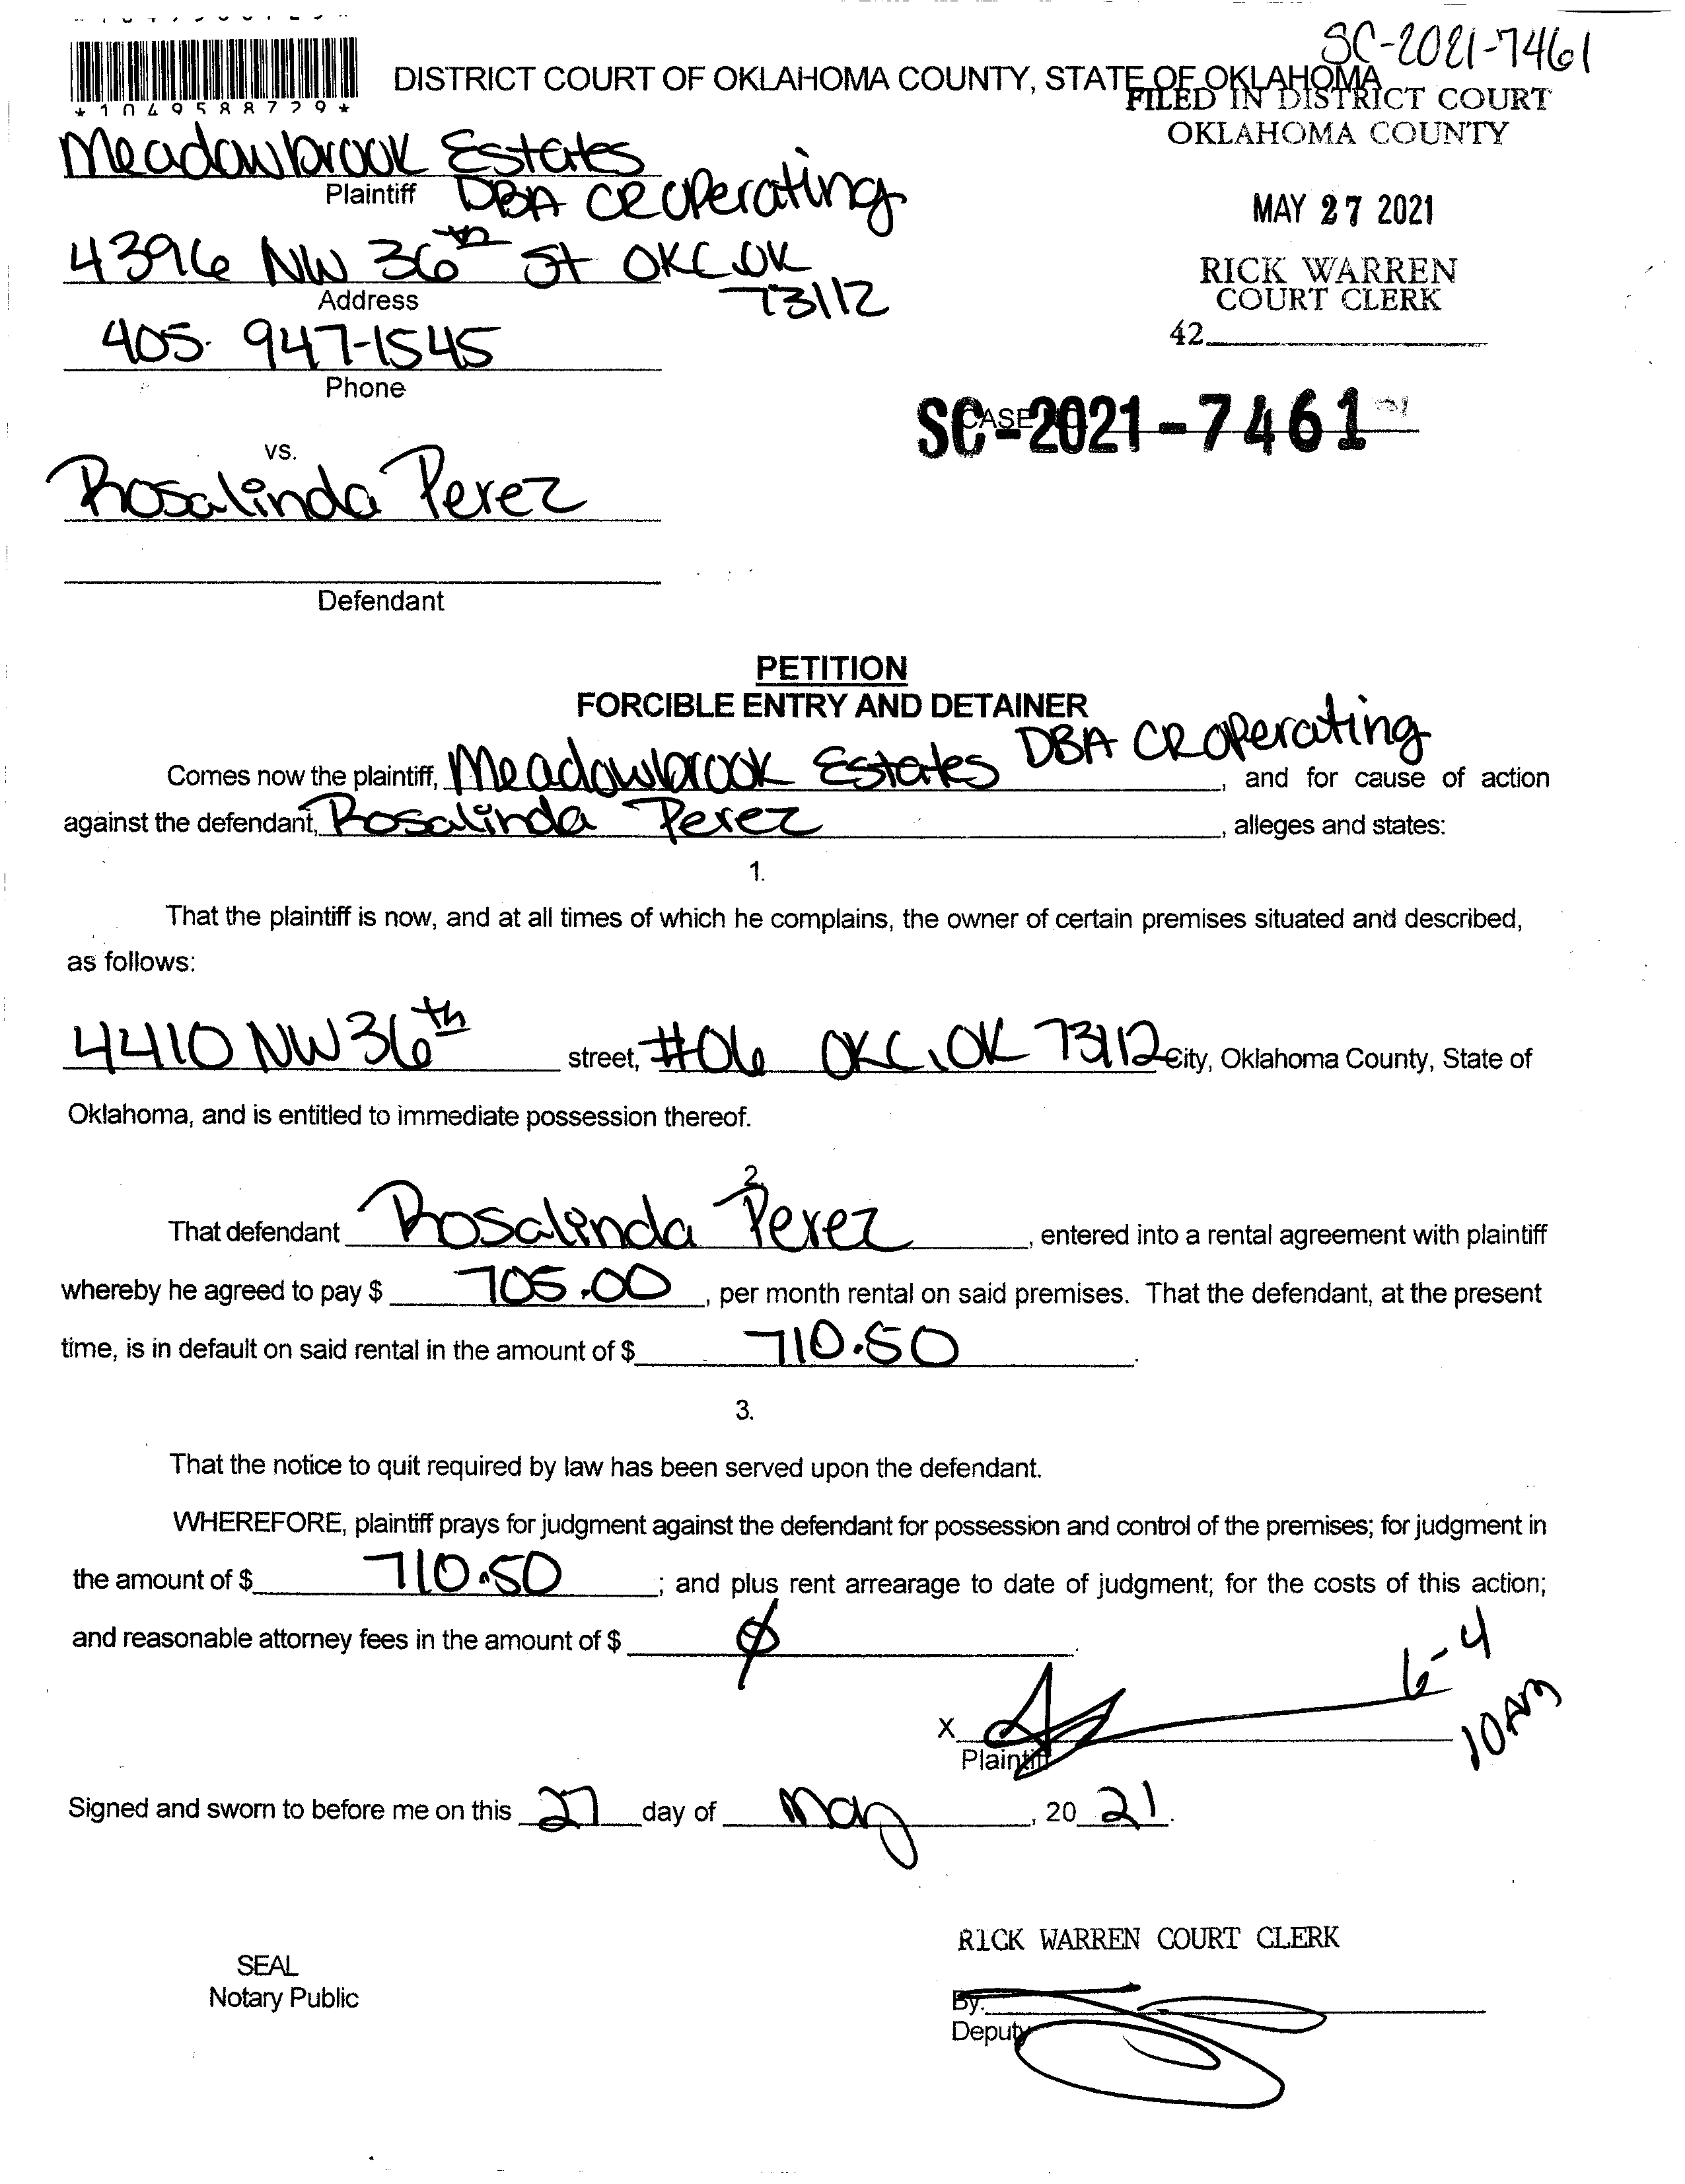 SC-2021-7461
*1049588729*
DISTRICT COURT OF OKLAHOMA COUNTY, STATE OF OKLAHOMA
FILED IN DISTRICT COURT
OKLAHOMA COUNTY
Meadowbrook Estates
Plaintiff DBA CR Operating
MAY 27 2021
4396 NW 36th St OKC, OK
Address 73112
RICK WARREN
COURT CLERK
42
405. 947-1545
Phone
CASE
SC-2021-7461
vs.
Rosalinda Perez
Defendant
PETITION
FORCIBLE ENTRY AND DETAINER
Comes now the plaintiff, Meadowbrook Estates DBA CR Operating, and for cause of action
against the defendant, Rosalinda Perez, alleges and states:
1.
That the plaintiff is now, and at all times of which he complains, the owner of certain premises situated and described,
as follows:
4410 NW 36th street, #06 OKC, OK 73112 City, Oklahoma County, State of
Oklahoma, and is entitled to immediate possession thereof.
2.
That defendant Rosalinda Perez, entered into a rental agreement with plaintiff
whereby he agreed to pay $ 705.00, per month rental on said premises. That the defendant, at the present
time, is in default on said rental in the amount of $ 710.50.
3.
That the notice to quit required by law has been served upon the defendant.
WHEREFORE, plaintiff prays for judgment against the defendant for possession and control of the premises; for judgment in
the amount of $ 710.50; and plus rent arrearage to date of judgment; for the costs of this action;
and reasonable attorney fees in the amount of $ ∅.
6-4
10AM
X
Plaintiff
Signed and sworn to before me on this 27 day of May, 20 21.
RICK WARREN COURT CLERK
SEAL
Notary Public
By.
Deputy